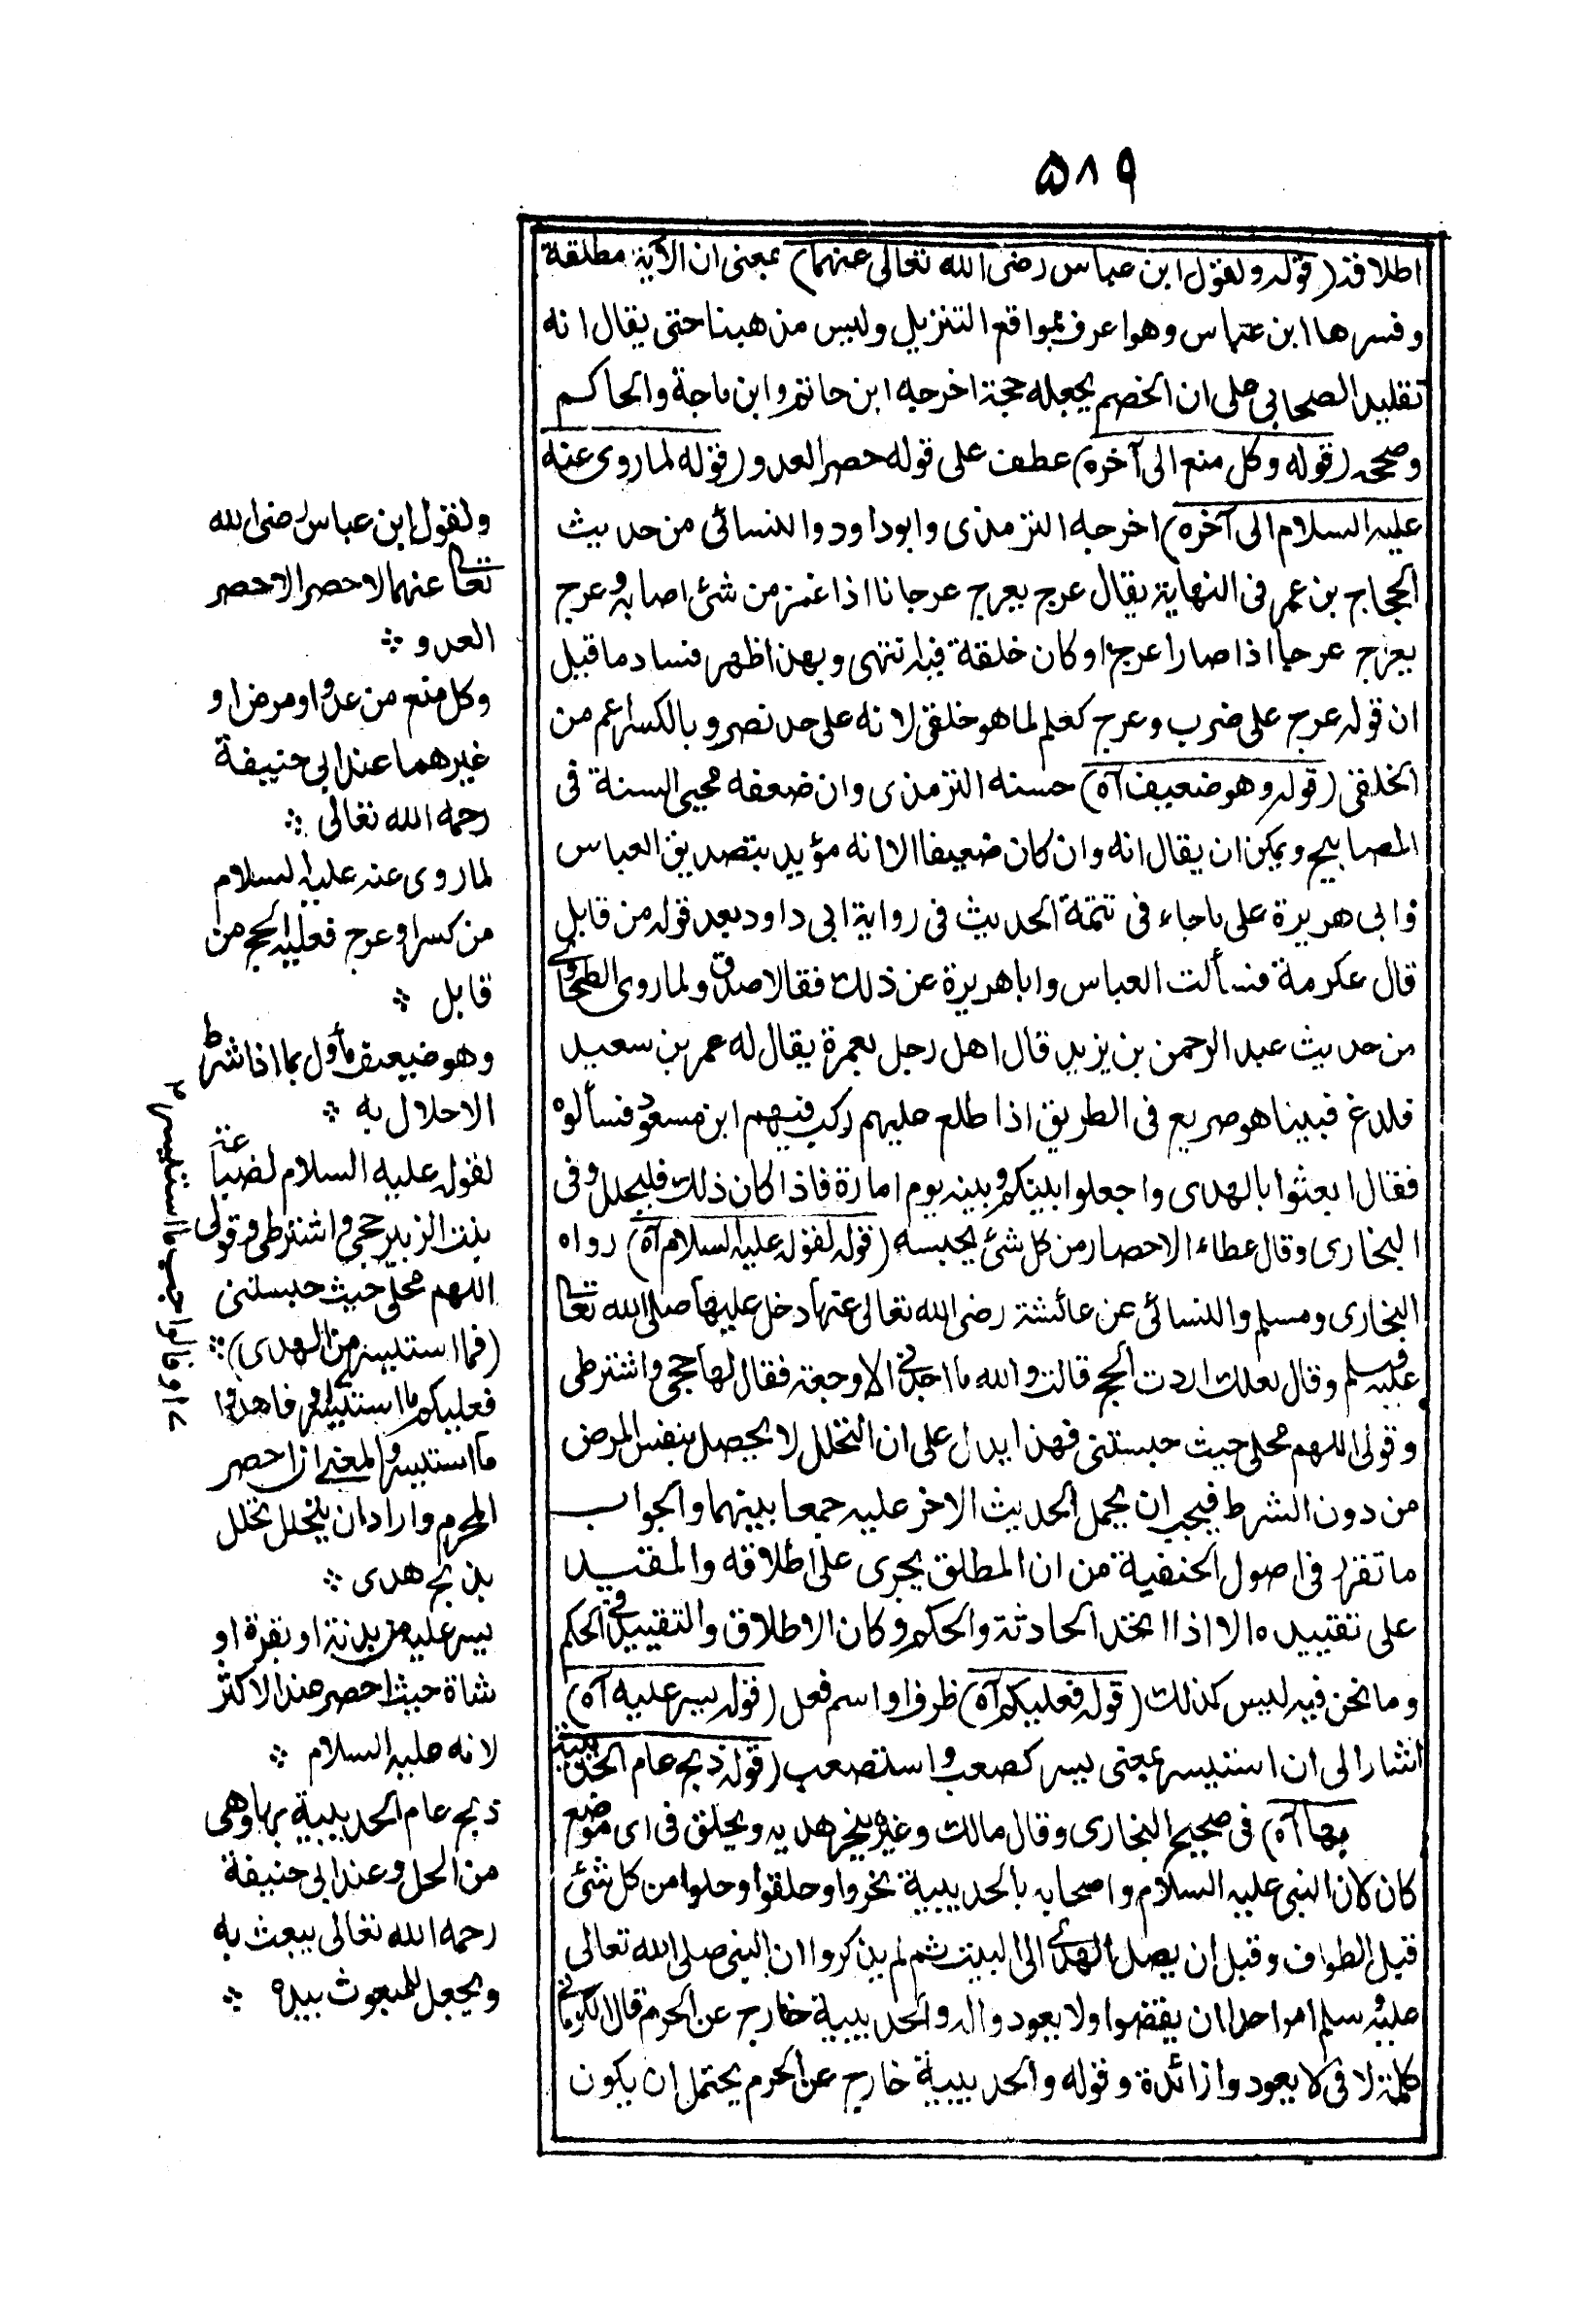 ۵۸۹
اطلاقه (قوله ولقول ابن عباس رضى الله تعالى عنهما) بمعنى ان الآية مطلقة
وفسرها ابن عباس وهو اعرف بمواقع التنزيل وليس مذهبنا حتى يقال انه
تقليد الصحابى على ان الخصم يجعله حجة اخرجه ابن حاتم وابن ماجة والحاكم
وصححه (قوله وكل منع الى آخره) عطف على قوله حصر العدو (قوله لما روى عنه
عليه السلام الى آخره) اخرجه الترمذى وابوداود والنسائى من حديث
الحجاج بن عمر فى النهاية يقال عرج يعرج عرجانا اذا غمز من شئ اصابه وعرج
يعرج عرجا اذا صار اعرج او كان خلقة فيه انتهى وبهذا ظهر فساد ما قيل
ان قوله عرج على ضرب وعرج كعلم لما هو خلقى لانه على حد نصر وبالكسر اعم من
الخلقى (قوله وهو ضعيف آه) حسنه الترمذى وان ضعفه محيى السنة فى
المصابيح ويمكن ان يقال انه وان كان ضعيفا الا انه مؤيد بتصديق العباس
وابى هريرة على ما جاء فى تتمة الحديث فى رواية ابى داود بعد قوله من قابل
قال عكرمة فسألت العباس وابا هريرة عن ذلك فقالا صدق ولما روى الطحاوى
من حديث عبد الرحمن بن يزيد قال اهل رجل بعمرة يقال له عمر بن سعيد
فلدغ فبينا هو صريع فى الطريق اذا طلع عليهم ركب فيهم ابن مسعود فسألوه
فقال ابعثوا بالهدى واجعلوا بينكم وبينه يوم امارة فاذا كان ذلك فليحلل وفى
البخارى وقال عطاء الاحصار من كل شئ يحبسه (قوله لقوله عليه السلام آه) رواه
البخارى ومسلم والنسائى عن عائشة رضى الله تعالى عنها دخل عليها صلى الله تعالى
عليه وسلم وقال لعلك اردت الحج قالت والله ما اجدنى الا وجعة فقال لها حجى واشترطى
وقولى اللهم محلى حيث حبستنى فهذا يدل على ان التحلل لا يحصل بنفس المرض
من دون الشرط فيجب ان يحمل الحديث الاخر عليه جمعا بينهما والجواب
ما تقرر فى اصول الحنفية من ان المطلق يجرى على اطلاقه والمقيد
على تقييده الا اذا اتحد الحادثة والحكم وكان الاطلاق والتقييد فى الحكم
وما نحن فيه ليس كذلك (قوله فعليكم آه) ظرف او اسم فعل (قوله يسر عليه آه)
اشار الى ان استيسر بمعنى يسر كصعب واستصعب (قوله ذبح عام الحديبية
بها آه) فى صحيح البخارى وقال مالك وغيره ينحر هديه ويحلق فى اى موضع
كان لان النبى عليه السلام واصحابه بالحديبية نحروا وحلقوا وحلوا من كل شئ
قبل الطواف وقبل ان يصل الهدى الى البيت ثم لم يذكروا ان النبى صلى الله تعالى
عليه وسلم امر احدا ان يقضوا ولا يعودوا له والحديبية خارج عن الحرم قال الكرمانى
كلمة لا فى لا يعودوا زائدة وقوله والحديبية خارج عن الحرم يحتمل ان يكون
ولقول ابن عباس رضى الله
تعالى عنهما لا حصر الا حصر
العدو
وكل منع من عدو او مرض او
غيرهما عند ابى حنيفة
رحمه الله تعالى
لما روى عنه عليه السلام
من كسر او عرج فعليه الحج من
قابل
وهو ضعيف مأول بما اذا شرط
الاحلال به
لقوله عليه السلام لضباعة
بنت الزبير حجى واشترطى وقولى
اللهم محلى حيث حبستنى
(فما استيسر من الهدى)
فعليكم ما استيسر او فاهدوا
ما استيسر والمعنى ان احصر
المحرم واراد ان يتحلل تحلل
بذبح هدى
يسر عليه من بدنة او بقرة او
شاة حيث احصر عند الاكثر
لانه عليه السلام
ذبح عام الحديبية بها وهى
من الحل وعند ابى حنيفة
رحمه الله تعالى يبعث به
ويجعل للمبعوث بيده